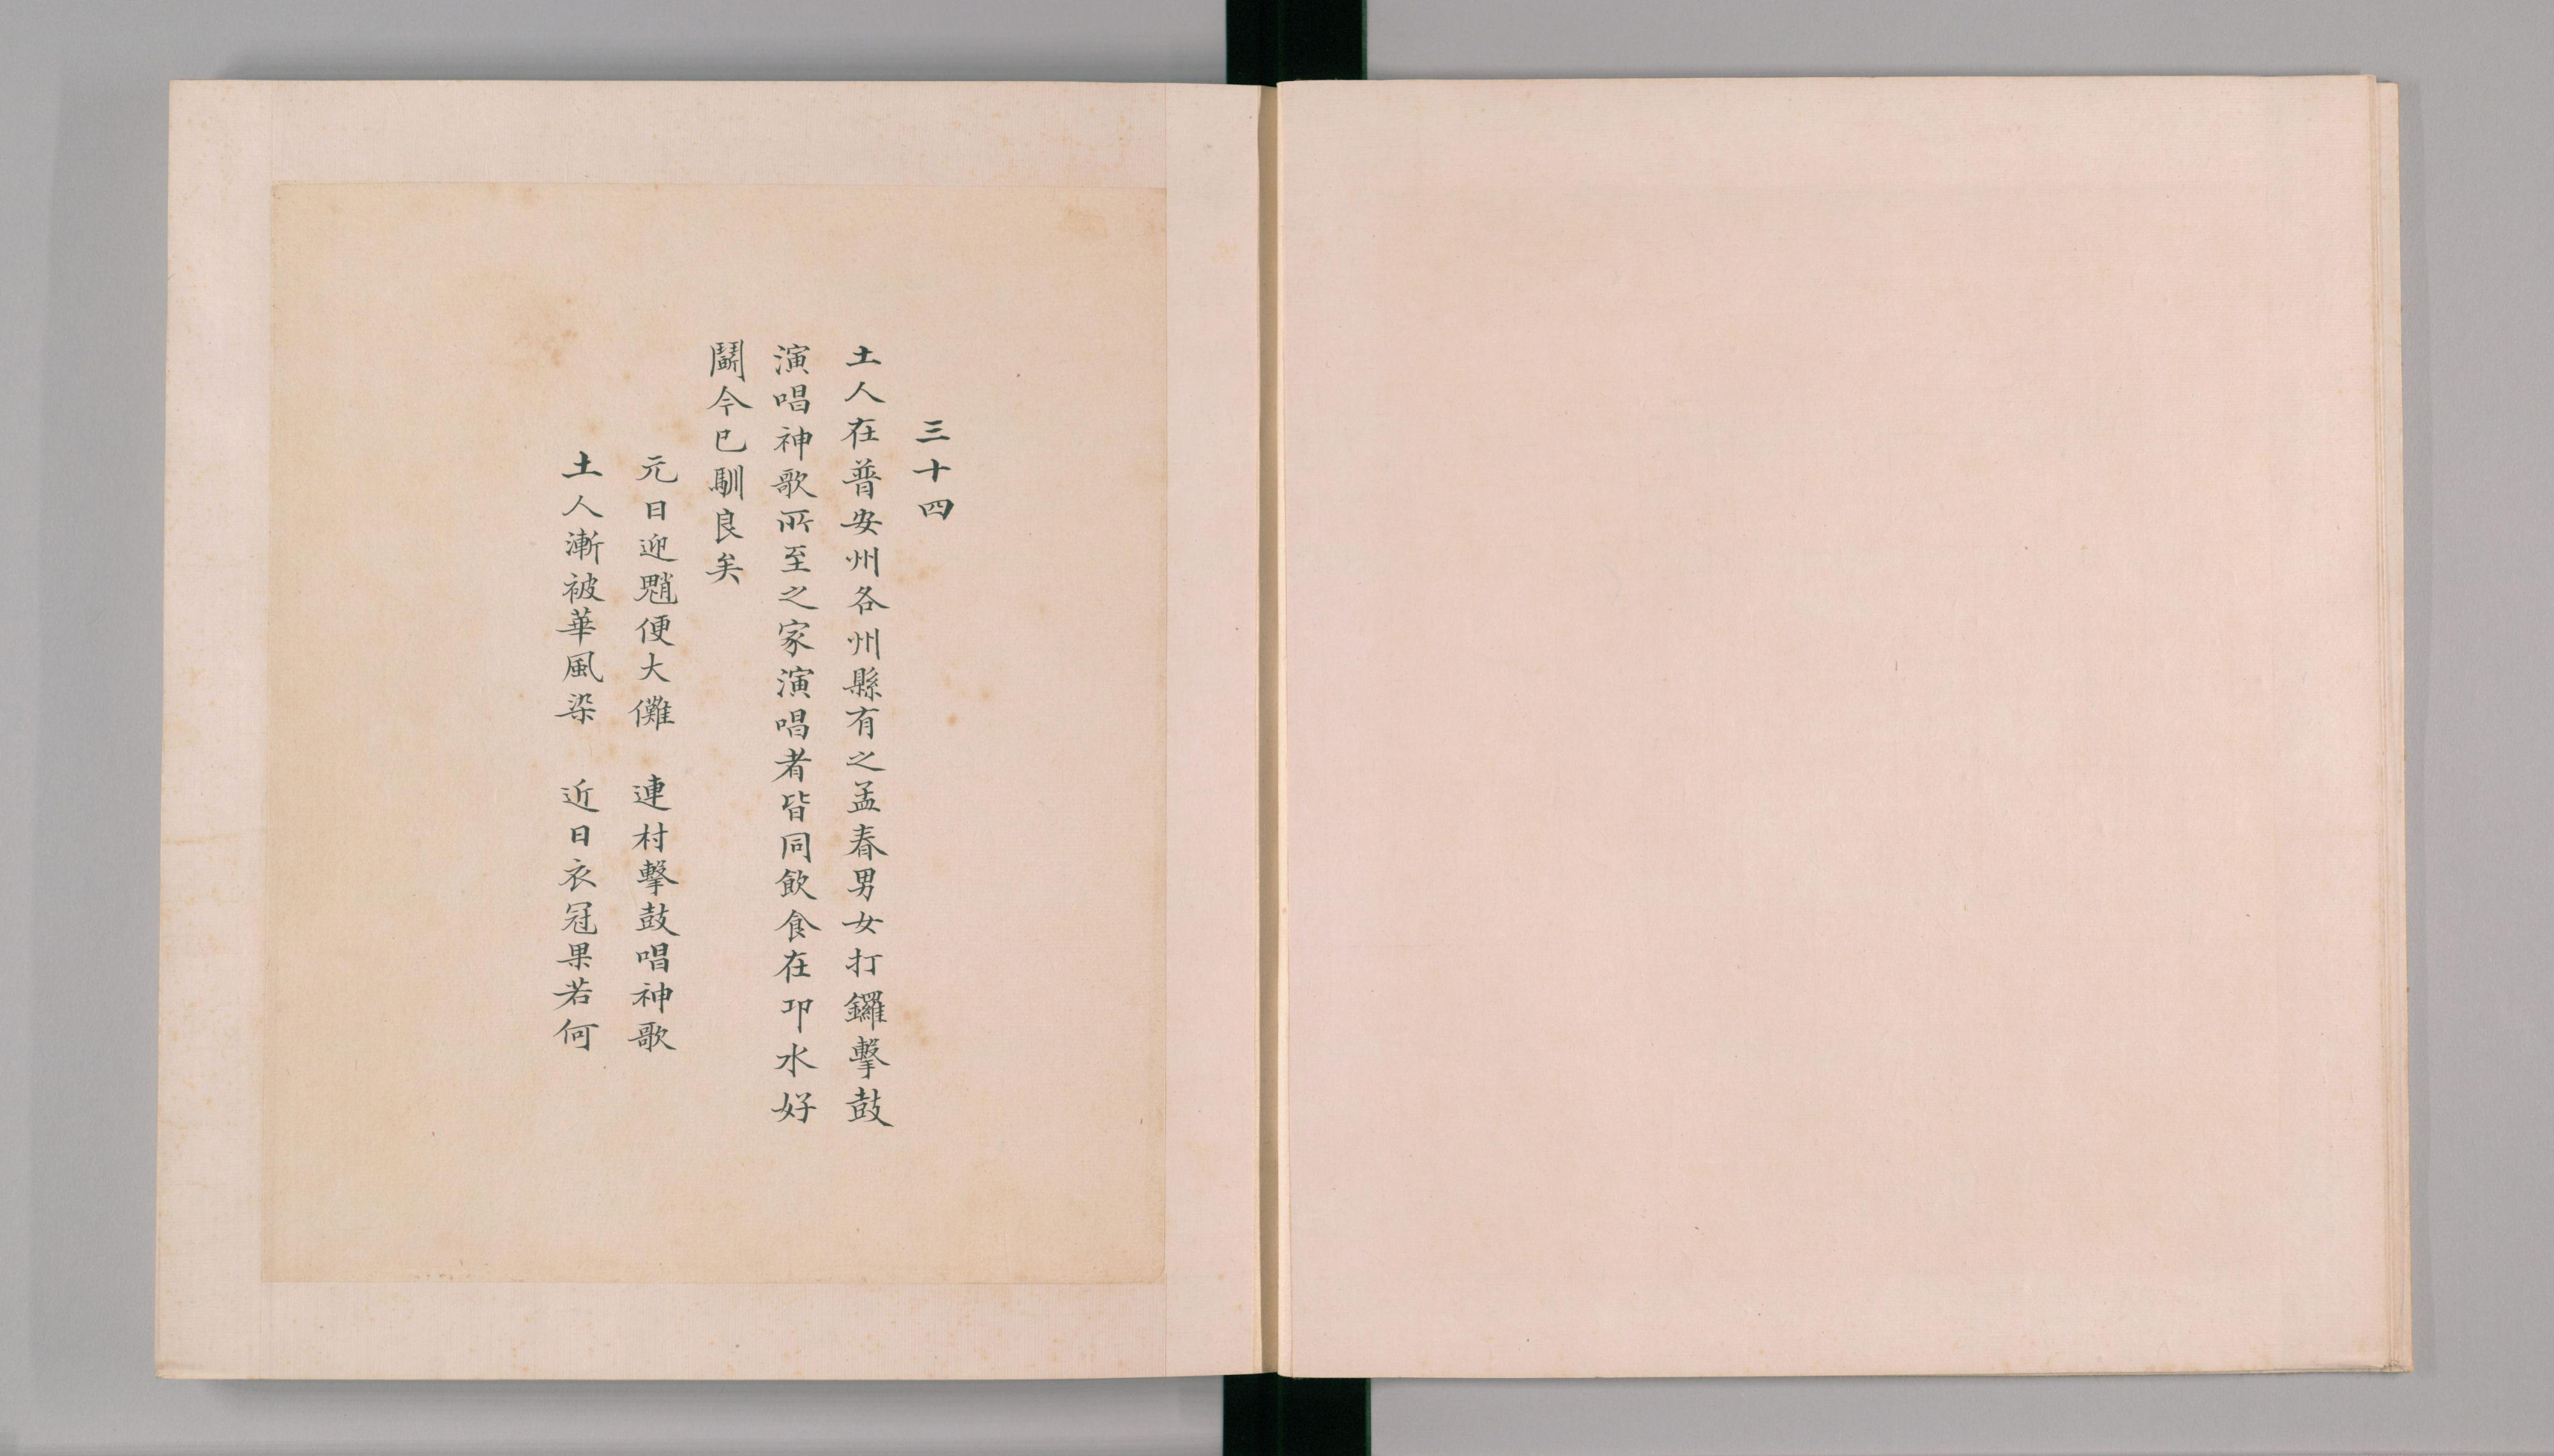 三十四
土人在普安州各州縣有之孟春男女打鑼擊鼓
演唱神歌所至之家演唱者皆同飲食在卭水好
鬭今已馴良矣
元日迎魈便大儺　連村擊鼓唱神歌
土人漸被華風染　近日衣冠果若何